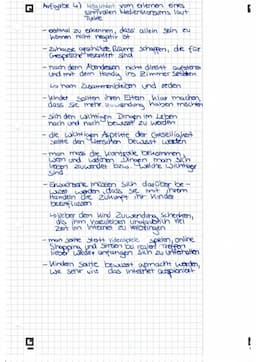 Aufgabe 4) Möglichkeit vom erlernen eines
sinnvollen Medienkonsums laut
Turkle
- erstmal zu erkennen, dass allein sein zu
können nicht negativ ist
- zuhause geschützte Räume schaffen, die für
Gespräche reserviert sind
- nach dem Abendessen nicht direkt aufstehen
und mit dem Handy ins Zimmer
- sondern Zusammenbleiben und reden
- Kinder sollten ihren Eltern klar machen,
dass sie mehr Zuwendung haben möchten
- sich den wichtigen Dingen im Leben
nach und nach bewusst zu werden
- die wichtigen Aspekte der Geselligkeit
sollte den Menschen bewusst werden
- man muss die Kontrolle bekommen,
wem und welchen Dingen man sich
widmet bzw. welche wichtige
sind
- Erwachsene müssen sich darüber be-
wusst werden, dass sie mit ihrem
Handeln die Zukunft ihr Kinder
beeinflussen
- lieber dem Kind Zuwendung schenken,
als ihm vorzuleben
zeit im Internet zu verbringen
- man sollte statt Videospiele spielen, online
Shopping und Serien bei realen Treffen
lieber wieder anfangen sich zu unterhalten
- Kindern sollte bewusst gemacht werden,
wie sehr uns das Internet ausspioniert